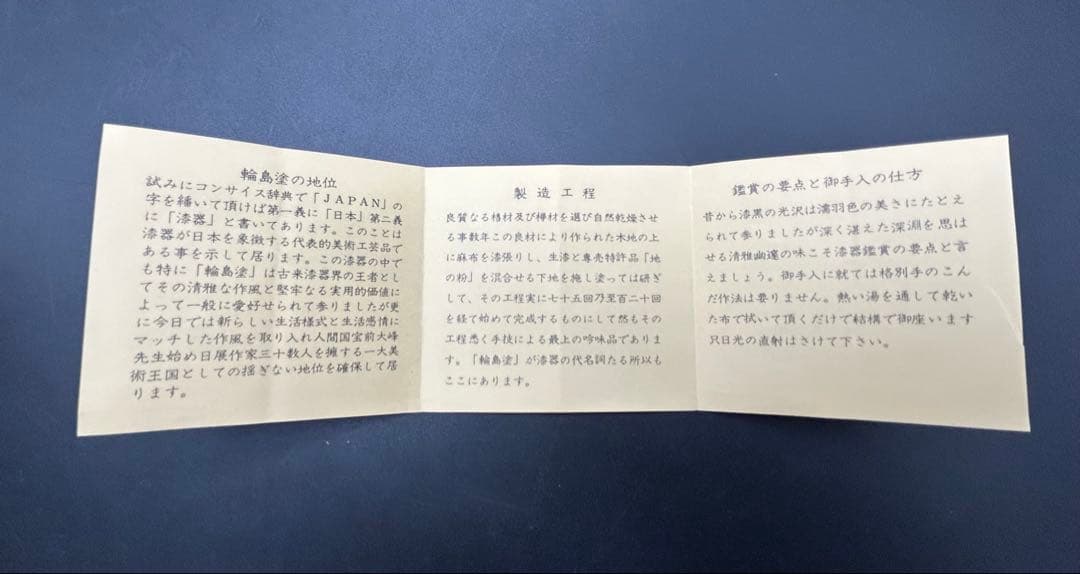 輪島塗の地位
試みにコンサイス辞典で「JAPAN」の
字を繙いて頂けば第一義に「日本」第二義
に「漆器」と書いてあります。このことは
漆器が日本を象徴する代表的美術工芸品で
ある事を示して居ります。この漆器の中で
も特に「輪島塗」は古来漆器界の王者とし
てその清雅な作風と堅牢なる実用的価値に
よって一般に愛好せられて参りましたが更
に今日では新らしい生活様式と生活感情に
マッチした作風を取り入れ人間国宝前大峰
先生始め日展作家三十数人を擁する一大美
術王国としての揺ぎない地位を確保して居
ります。
製造工程
良質なる档材及び欅材を選び自然乾燥させ
る事数年この良材により作られた木地の上
に麻布を漆張りし、生漆と専売特許品「地
の粉」を混合せる下地を施し塗っては研ぎ
して、その工程実に七十五回乃至百二十回
を経て始めて完成するものにして然もその
工程悉く手技による最上の吟味品でありま
す。「輪島塗」が漆器の代名詞たる所以も
ここにあります。
鑑賞の要点と御手入の仕方
昔から漆黒の光沢は濡羽色の美さにたとえ
られて参りましたが深く湛えた深淵を思は
せる清雅幽邃の味こそ漆器鑑賞の要点と言
えましょう。御手入に就ては格別手のこん
だ作法は要りません。熱い湯を通して乾い
た布で拭いて頂くだけで結構で御座います
只日光の直射はさけて下さい。